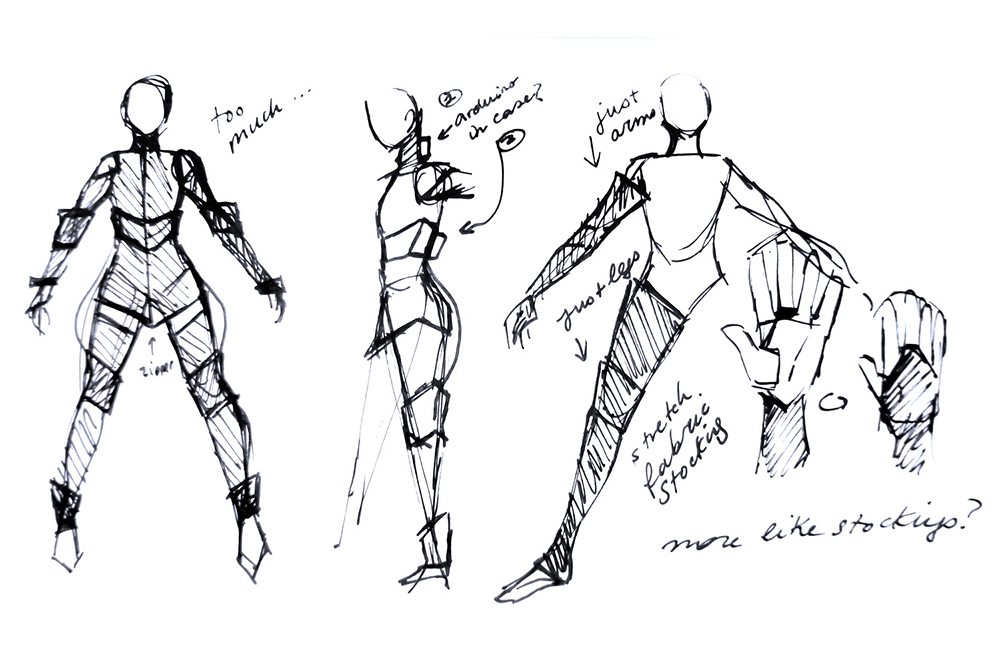 too
much...
①
arduino
in case?
②
just
arms
just legs
zipper
stretch.
fabric
stocking
more like stockings?